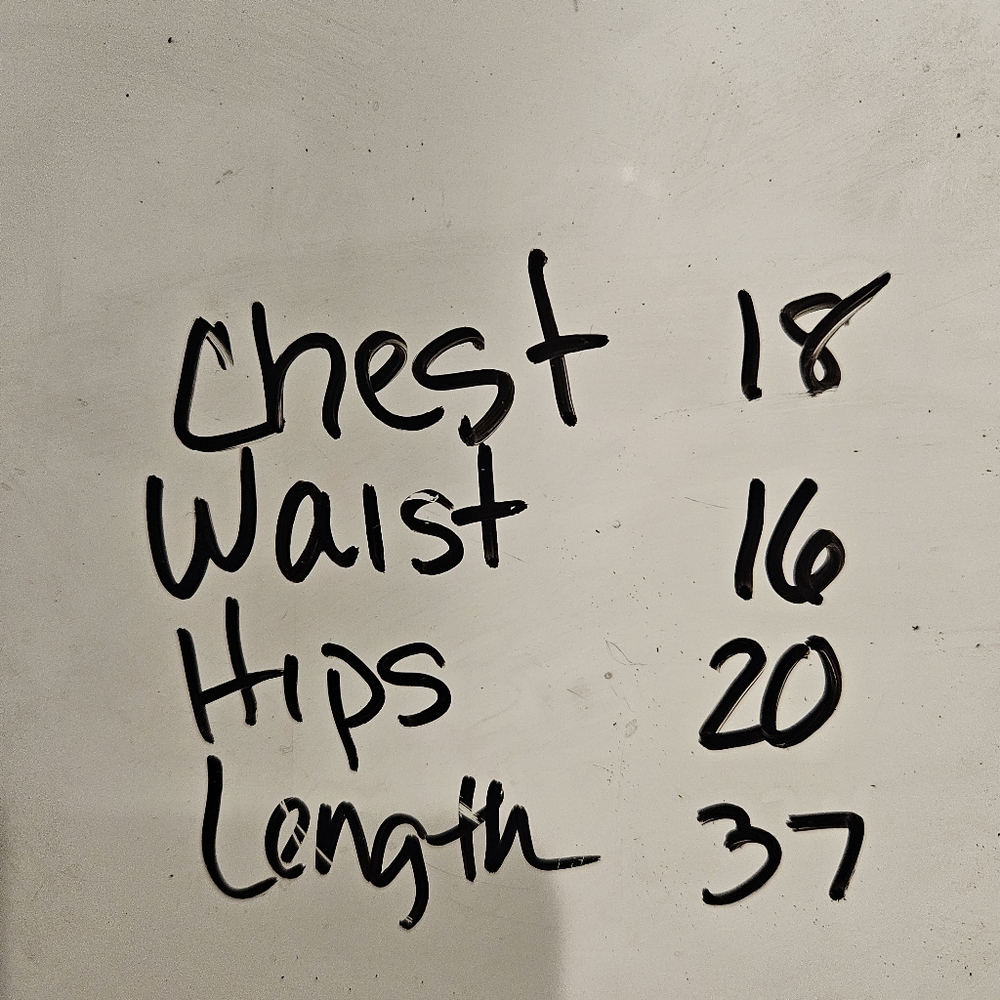 Chest 18
Waist 16
Hips 20
Length 37